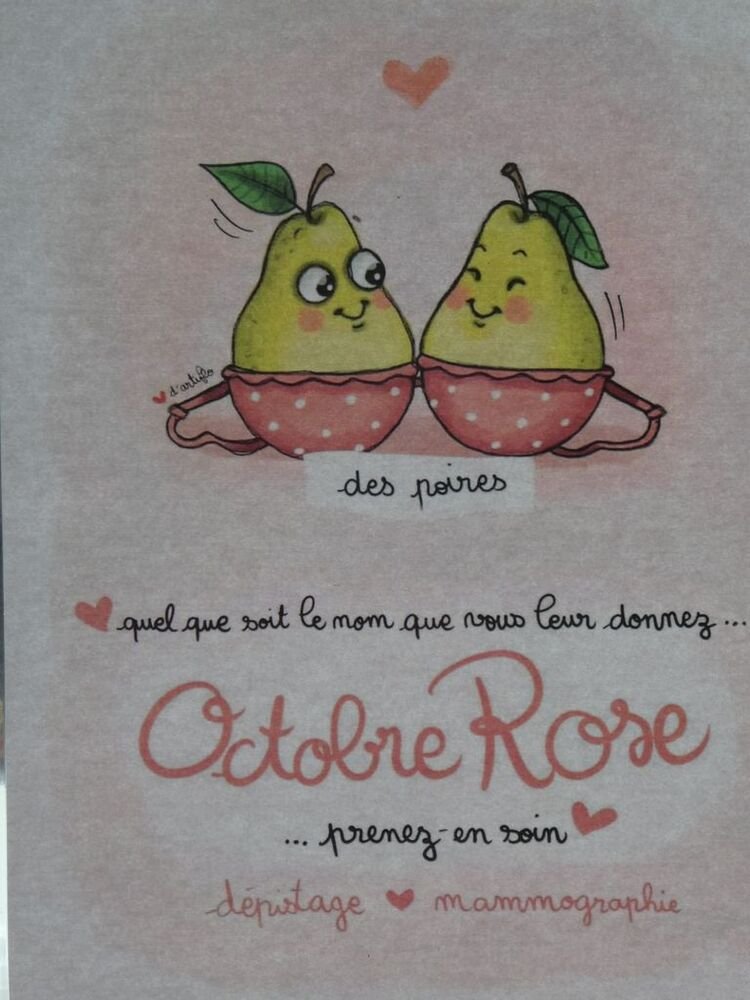 d'artiflo
des poires
quel que soit le nom que vous leur donnez...
Octobre Rose
... prenez-en soin
dépistage mammographie